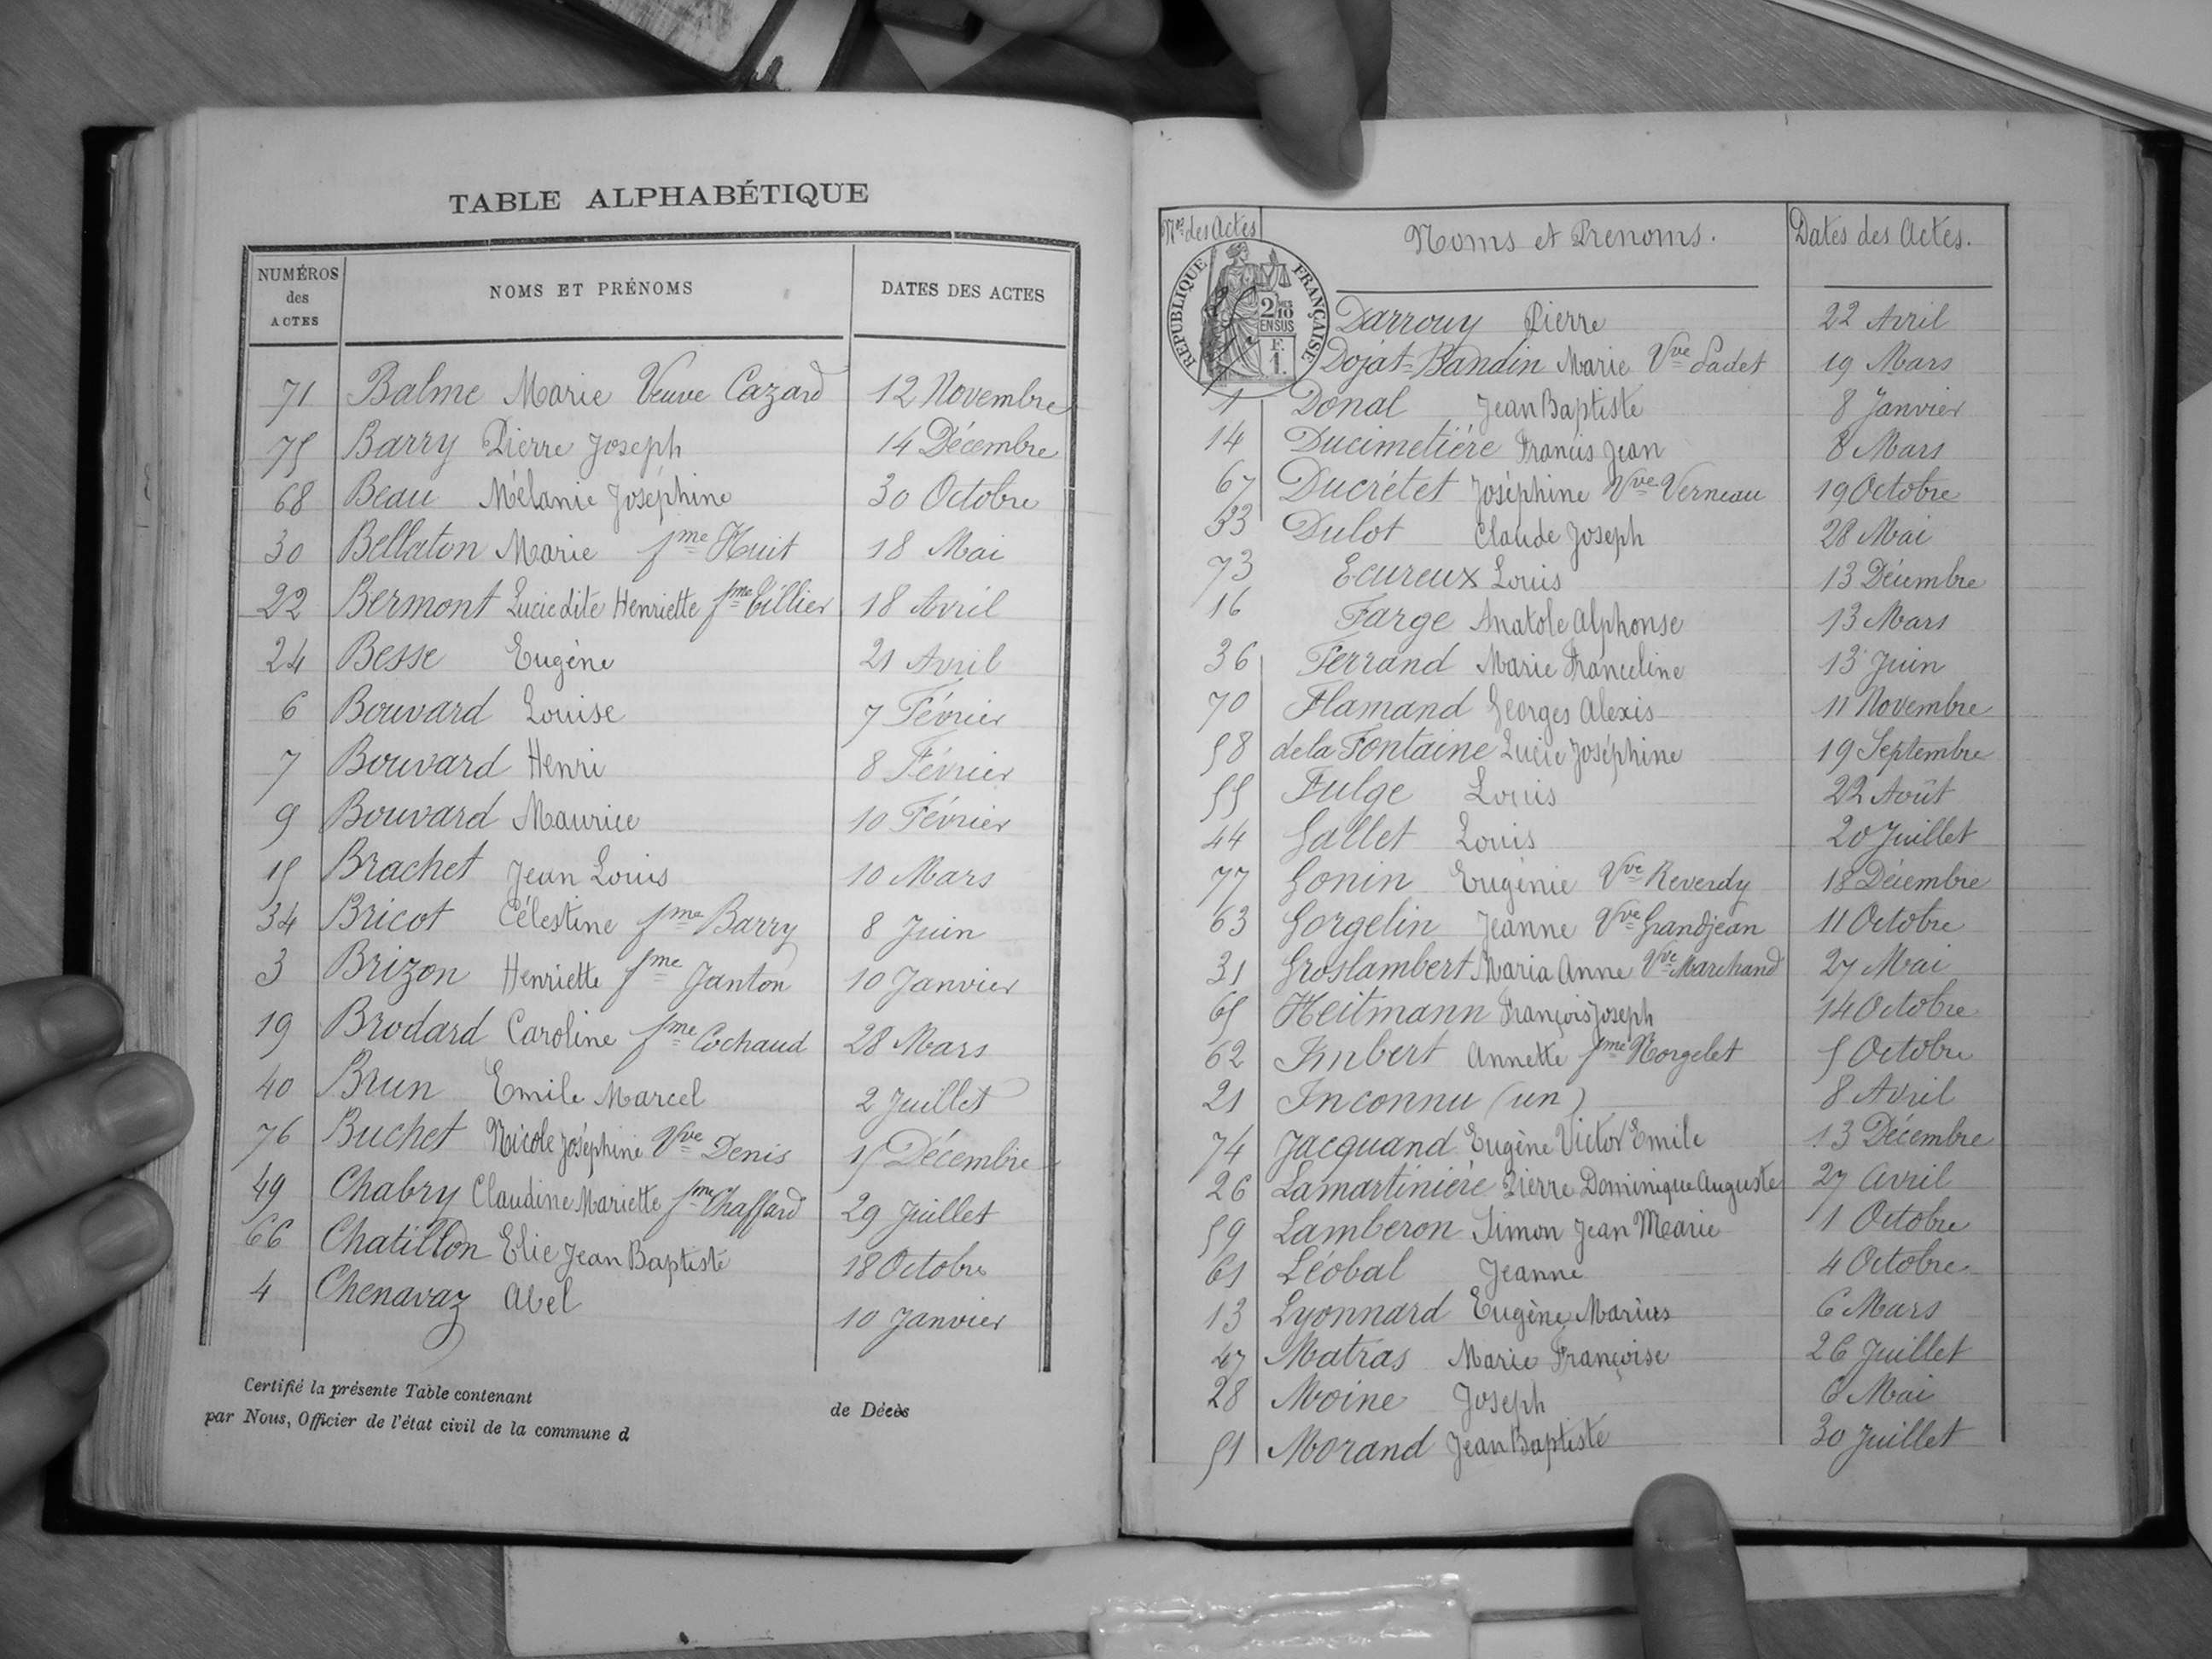 TABLE ALPHABÉTIQUE
NUMÉROS des ACTES NOMS ET PRÉNOMS DATES DES ACTES
71 Balme Marie Veuve Cazard 12 Novembre
75 Barry Pierre Joseph 14 Décembre
68 Beau Mélanie Joséphine 30 Octobre
30 Bellaton Marie fme Huit 18 Mai
22 Bermont Lucie dite Henriette fme 18 Avril
24 Besse Eugène 21 Avril
6 Bouvard Louise 7 Février
7 Bouvard Henri 8 Février
9 Bouvard Maurice 10 Février
15 Brachet Jean Louis 10 Mars
34 Bricot Célestine fme Barry 8 Juin
3 Brizon Henriette fme Janton 10 Janvier
19 Brodard Caroline fme Cochaud 28 Mars
40 Brun Emile Marcel 2 Juillet
76 Buchet Nicole Joséphine Vve Denis 15 Décembre
49 Chabry Claudine Mariette fme Chaffard 29 Juillet
66 Chatillon Elie Jean Baptiste 18 Octobre
4 Chenavaz Abel 10 Janvier
Certifié la présente Table contenant de Décès
par Nous, Officier de l'état civil de la commune d
Nos des Actes Noms et Prenoms. Dates des Actes.
RÉPUBLIQUE FRANÇAISE
2/10
EN SUS
F.
1.
Darrouy Pierre 22 Avril
Dojat=Bandin Marie Vve Padet 19 Mars
1 Donal Jean Baptiste 8 Janvier
14 Ducimetière Francis Jean 8 Mars
67 Ducrétet Joséphine Vve Verneau 19 Octobre
33 Dulot Claude Joseph 28 Mai
73 Ecureux Louis 13 Décembre
16 Farge Anatole Alphonse 13 Mars
36 Ferrand Marie Franceline 13 Juin
70 Flamand Georges Alexis 11 Novembre
58 de la Fontaine Lucie Joséphine 19 Septembre
55 Fulge Louis 22 Août
44 Gallet Louis 20 Juillet
77 Gonin Eugénie Vve Reverdy 18 Décembre
63 Gorgelin Jeanne Vve Grandjean 11 Octobre
31 Groslambert Maria Anne Vve Marchand 27 Mai
65 Heitmann François Joseph 14 Octobre
62 Imbert Annette fme Norgelet 5 Octobre
21 Inconnu (un) 8 Avril
74 Jacquand Eugène Victor Emile 13 Décembre
26 Lamartinière Pierre Dominique Auguste 27 Avril
59 Lamberon Simon Jean Marie 1 Octobre
61 Léobal Jeanne 4 Octobre
13 Lyonnard Eugène Marius 6 Mars
47 Matras Marie Françoise 26 Juillet
28 Moine Joseph 6 Mai
51 Morand Jean Baptiste 30 Juillet